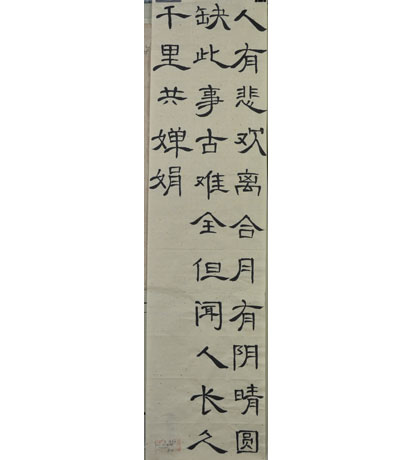 人有悲欢离合月有阴晴圆
缺此事古难全但闻人长久
千里共婵娟